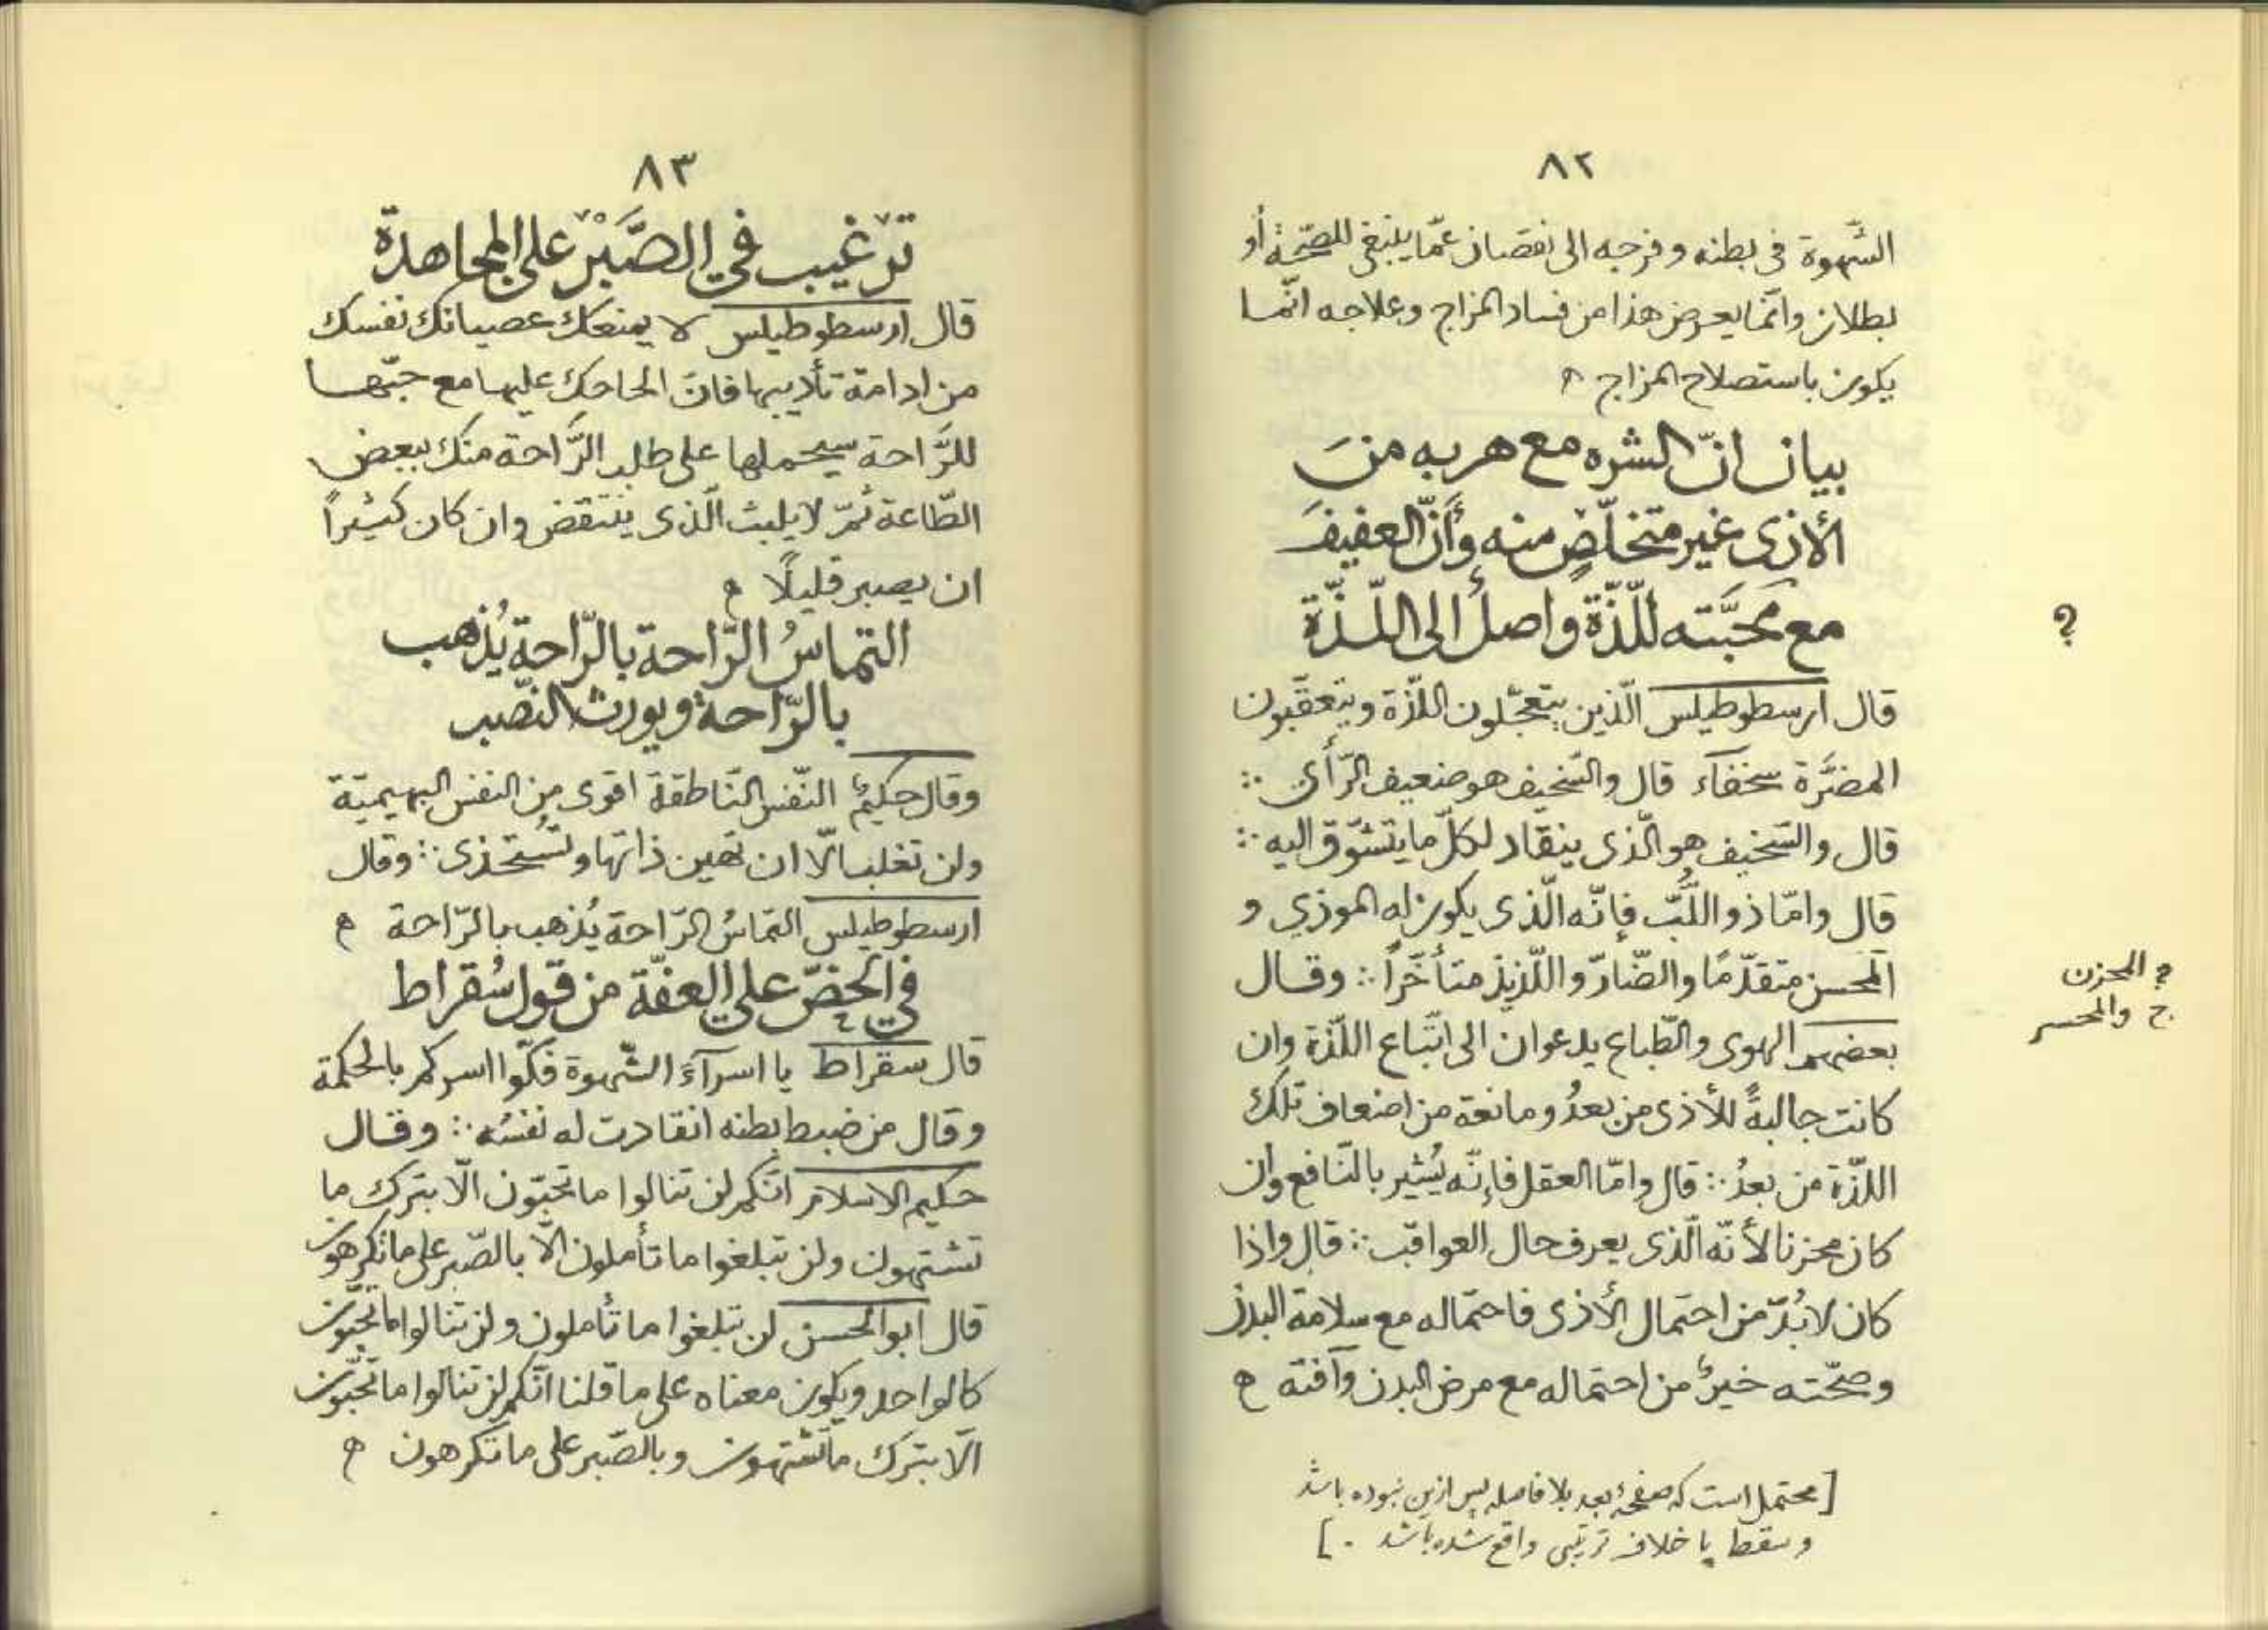 ٨٢
الشَّهوة فى بطنه و فرجه الى نقصان عمّا ينبغى للصّحّة أو
بطلان وانّما يعرض هذا من فساد المزاج وعلاجه انّما
يكون باستصلاح المزاج ه
بيان انّ الشره مع هربه منَ
الأذى غير متخلّصٍ منه وأنّ العفيفَ
مع محبَّته للّذّة واصلٌ الى اللّذّة
؟
قال ارسطوطيلس الّذين يتعجّلون اللّذّة ويتعقّبون
المضَّرة سخفاء قال والسّخيف هو ضعيف الرّأى ∴
قال والسّخيف هو الّذى ينقاد لكلّ ما يتشوّق اليه ∴
قال وامّا ذو اللُّبّ فإنّه الّذى يكون له الموذي و
المحسن متقدّمًا والضّارّ واللّذيذ متأخّراً ∴ وقال
؟ المحزن
ج والمحسر
بعضهم الهوى والطّباع يدعوان الى اتّباع اللّذّة وان
كانت جالبةً للأذى من بعدُ ومانعة من اضعاف تلك
اللذّة من بعدُ ∴ قال وامّا العقل فإنّه يُشير بالنّافع وان
كان محزنا لأنّه الّذى يعرف حال العواقب ∴ قال واذا
كان لا بُدّ من احتمال الأذى فاحتماله مع سلامة البدن
وصحّته خيرٌ من احتماله مع مرض البدن وآفته ه
[محتمل است كه صفحهٔ بعد بلا فاصله پس ازين نبوده باشد
و سقط يا خلاف ترتيبى واقع شده باشد .]
٨٣
ترغيب في الصَّبْر على المجاهدة
قال ارسطوطيلس لا يمنعك عصيانك نفسك
من ادامة تأديبها فانّ الحاحك عليها مع حبّها
للرَّاحة سيحملها على طلب الرَّاحة منك ببعض
الطّاعة ثمّ لا يلبث الّذى ينتقض وان كان كثيراً
ان يصير قليلًا ه
التماسُ الرّاحة بالرّاحة يُذهب
بالرّاحة ويورث النّصب
وقال حكيمٌ النّفس النّاطقة اقوى من النفس البهيميّة
ولن تغلب الّا ان تهين ذاتها وتستخذى ∴ وقال
ارسطوطيلس التماسُ الرّاحة يُذهب بالرّاحة ه
في الحضّ على العفّة من قول سُقراط
قال سقراط يا اسرآءَ الشّهوة فكّوا اسركم بالحكمة
وقال من ضبط بطنه انقادت له نفسُه ∴ وقال
حكيم الاسلام انّكم لن تنالوا ما تحبّون الّا بترك ما
تشتهون ولن تبلغوا ما تأملون الّا بالصّبر على ما تكرهون
قال ابوالحسن لن تبلغوا ما تأملون ولن تنالوا ما تحبّون
كالواحد ويكون معناه على ما قلنا انّكم لن تنالوا ما تحبّون
الّا بترك ما تشتهون وبالصّبر على ما تكرهون ه